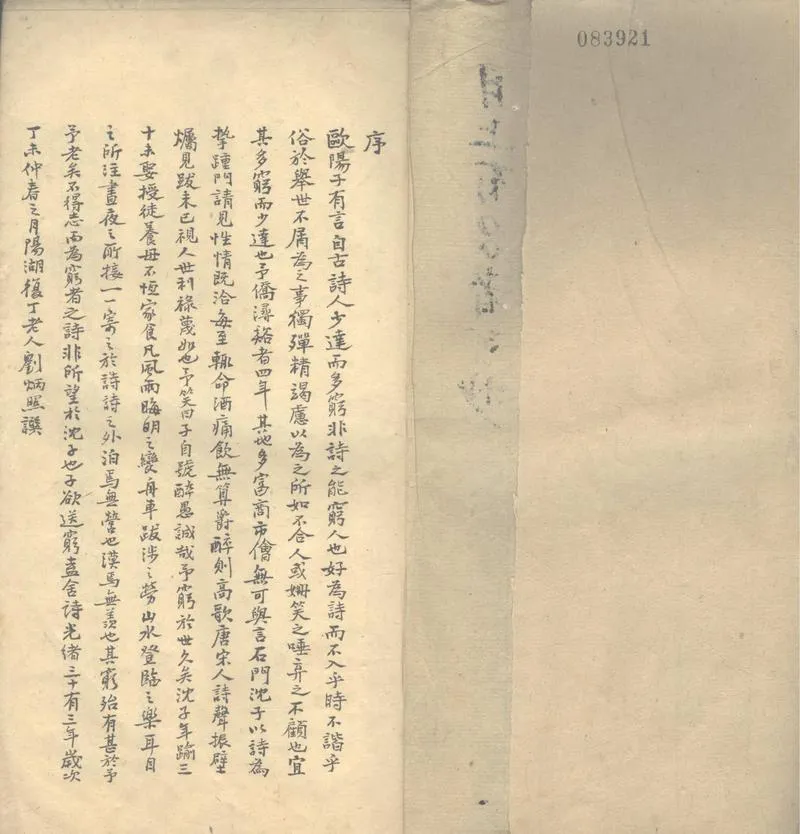 083921
序
歐陽子有言自古詩人少達而多窮非詩之能窮人也好為詩而不入乎時不諧乎
俗於舉世不屑為之事獨殫精竭慮以為之所如不合人或姍笑之唾弃之不顧也宜
其多窮而少達也予僑潯谿者四年其地多富商市儈無可與言石門沈子以詩為
摯踵門請見性情既洽每至輒命酒痛飲無算爵醉則高歌唐宋人詩聲振壁
爥見跋未已視人世利祿蔑如也予笑曰子自號醉愚誠哉予窮於世久矣沈子年踰三
十未娶授徒養母不恆家食凡風雨晦明之變舟車跋涉之勞山水登臨之樂耳目
之所注晝夜之所接一一寄之於詩詩之外泊焉無營也漠焉無羨也其窮殆有甚於予
予老矣不得志而為窮者之詩非所望於沈子也子欲送窮盍舍詩光緒三十有三年歲次
丁未仲春之月陽湖復丁老人劉炳照譔